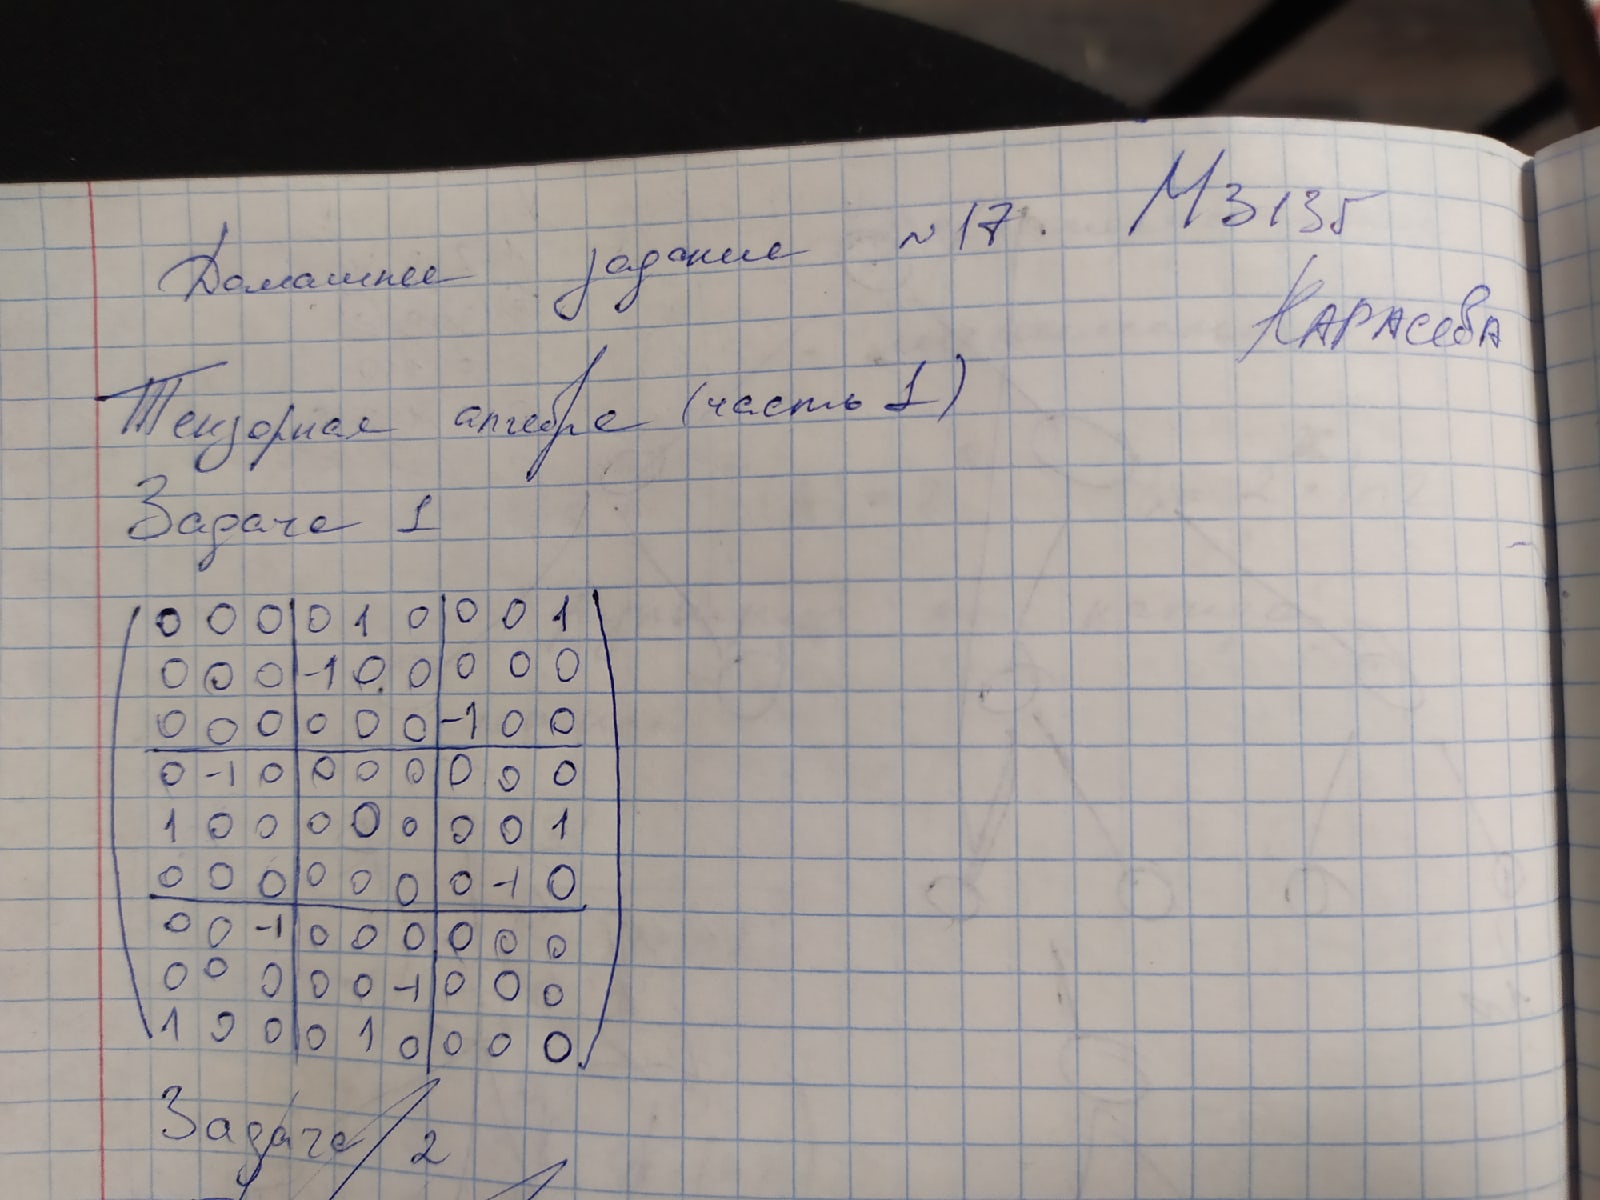 Домашнее задание №17. М3135
КАРАСЕВА
Тензорная алгебра (часть 1)
Задача 1
0 0 0 | 0 1 0 | 0 0 1
0 0 0 | -1 0 0 | 0 0 0
0 0 0 | 0 0 0 | -1 0 0
0 -1 0 | 0 0 0 | 0 0 0
1 0 0 | 0 0 0 | 0 0 1
0 0 0 | 0 0 0 | 0 -1 0
0 0 -1 | 0 0 0 | 0 0 0
0 0 0 | 0 0 -1 | 0 0 0
1 0 0 | 0 1 0 | 0 0 0
Задача 2